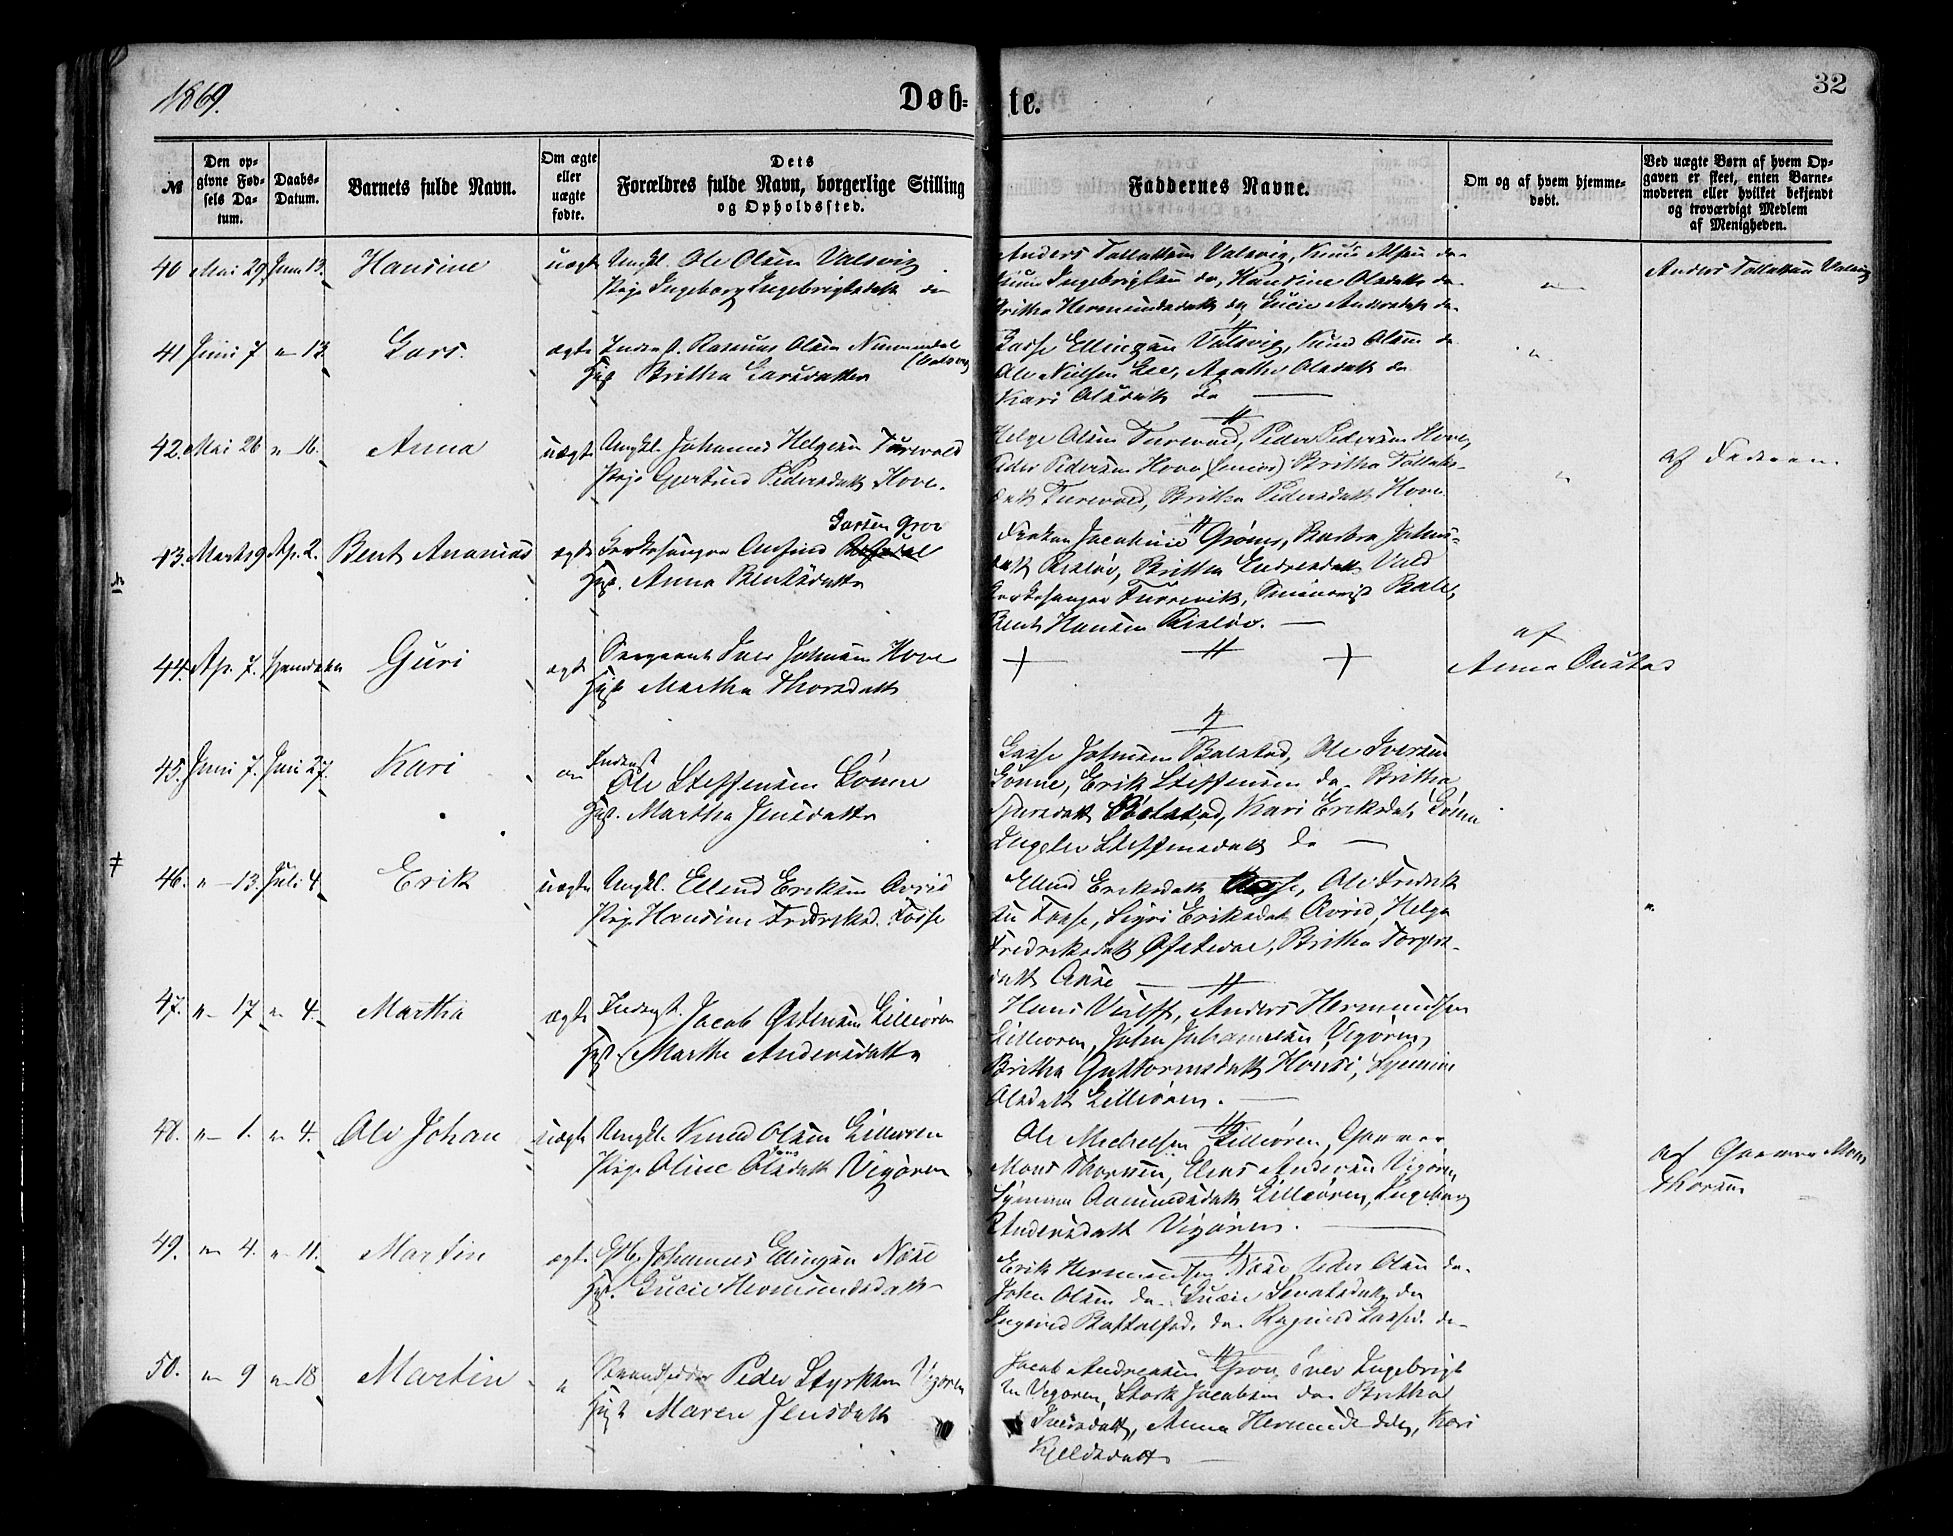 1869.
Døb- te.
32
№
Den op-
givne Fød-
sels Da-
tum.
Daabs-
Datum.
Barnets fulde Navn.
Om ægte
eller
uægte
fødte.
Dets
Forældres fulde Navn, borgerlige Stilling
og Opholdssted.
Faddernes Navne.
Om og af hvem hjemme-
døbt.
Ved uægte Børn af hvem Op-
gaven er skeet, enten Barne-
moderen eller hvilket bekjendt
og troværdigt Medlem
af Menigheden.
40 Mai 29 Juni 13. Hansine uægte Ungkl. Ole Olsen Valsvig
Pige Ingeborg Ingebrigtsdatt do
Anders Tollaksen Valsvig, Knud
Ingebrigtsen do, Hansine Olsdatt do
Britha Hermundsdatt og Lucie Andersdatt do
Anders Tollaksen Valsvig
41 Juni 7 " 13. Lars. ægte Inderst. Rasmus Olsen Nummedal
(Valsvig
Hust Britha Larsdatter
Lasse Ellingsen Valsvig, Knud Olsen do
Ole Nielsen Lee, Agathe Olsdatt do
Kari Olsdatt do
42. Mai 26 " 16. Anna uægte Ungkl. Johannes Helgesen Turevold
Pige Gjertrud Pedersdatt Hove.
Helge Olsen Turevold, Peder Pedersen Hove,
Peder Pedersen Hove (Senior) Britha Tollaks-
datt Turevold, Britha Pedersdatt Hove.
af Faderen
43. Marts 9 Ap. 2. Bent Ananias ægte Kirkesanger Amfind
Larsen Grov
Hust. Anna Bentsdatter
Frøken Jacobine Grøner, Barbra Johns-
datt Risløv, Britha Endresdatt Vald
Kirkesanger Turrevik, Seminarist Bale,
Bent Hansen Risløv.
44. Ap. 7. Hjemdøbt Guri ægte Sergeant Iver Johnsen Hove
Hust Martha Thorsdatt
af
Anna Onstad
45. Juni 7. Juni 27. Kari Inderst
Ole Steffensen Lønne
Hust. Martha Jensdatter
Lasse Johnsen Bolstad, Ole Iversen
Lønne, Erik Steffensen do Britha
Iversdatt Bolstad, Kari Eriksdat Lønne
Ingelev Steffensdatt do
46. " 13. Juli 4 Erik uægte Ungkl. Ellend Eriksen Avrid
Pige Hansine Fredriksd. Fosse
Ellend Eriksdatt Ole Fredrik
sen Fosse, Sigri Eriksdat Avrid, Helga
Fredriksdatt Ofstedal, Britha Torgers-
datt Aase
47. " 17 " 4. Martha ægte Inderst. Jacob Østensen Lilleøren
Hust. Marthe Andersdatter
Hans Wulff, Anders Hermundsen
Lilleøren, John Johannesen Vigøren,
Britha Guttormsdatt Honsi, Synneve
Olsdatt Lilleøren.
48. " 1. " 4. Ole Johan uægte Ungkl. Knud Olsen Lilleøren
Pige Oline Olsdatt Vigøren
Ole Mickelsen Lilleøren, Gammer
Mons Thorsen, Elias Andersen Vigøren,
Synneva Aamundsdatt Lilleøren, Ingeborg
Andersdatt Vigøren.
af Gammer Mons
Thorsen
49. " 4. " 11. Martin ægte Gbr. Johannes Ellingsen Nøse
Hust. Lucie Hermundsdatt
Erik Hermundsen Nøse Peder Olsen do.
John Olsen do. Lucie Sjovatsdatt do
Ingerid Botolfsd. do. Ragnild Lassed. do
50. " 9 " 18 Martin " Strandsidder Peder Styrksen Vigøren
Hust Maren Jensdatt
Jacob Andreasen Grov, Iver Ingebrigt
sen Vigøren, Stork Jacobsen do Britha
Iversdatt, Anna Hermundsdatt, Kari
Kjeldsdatt